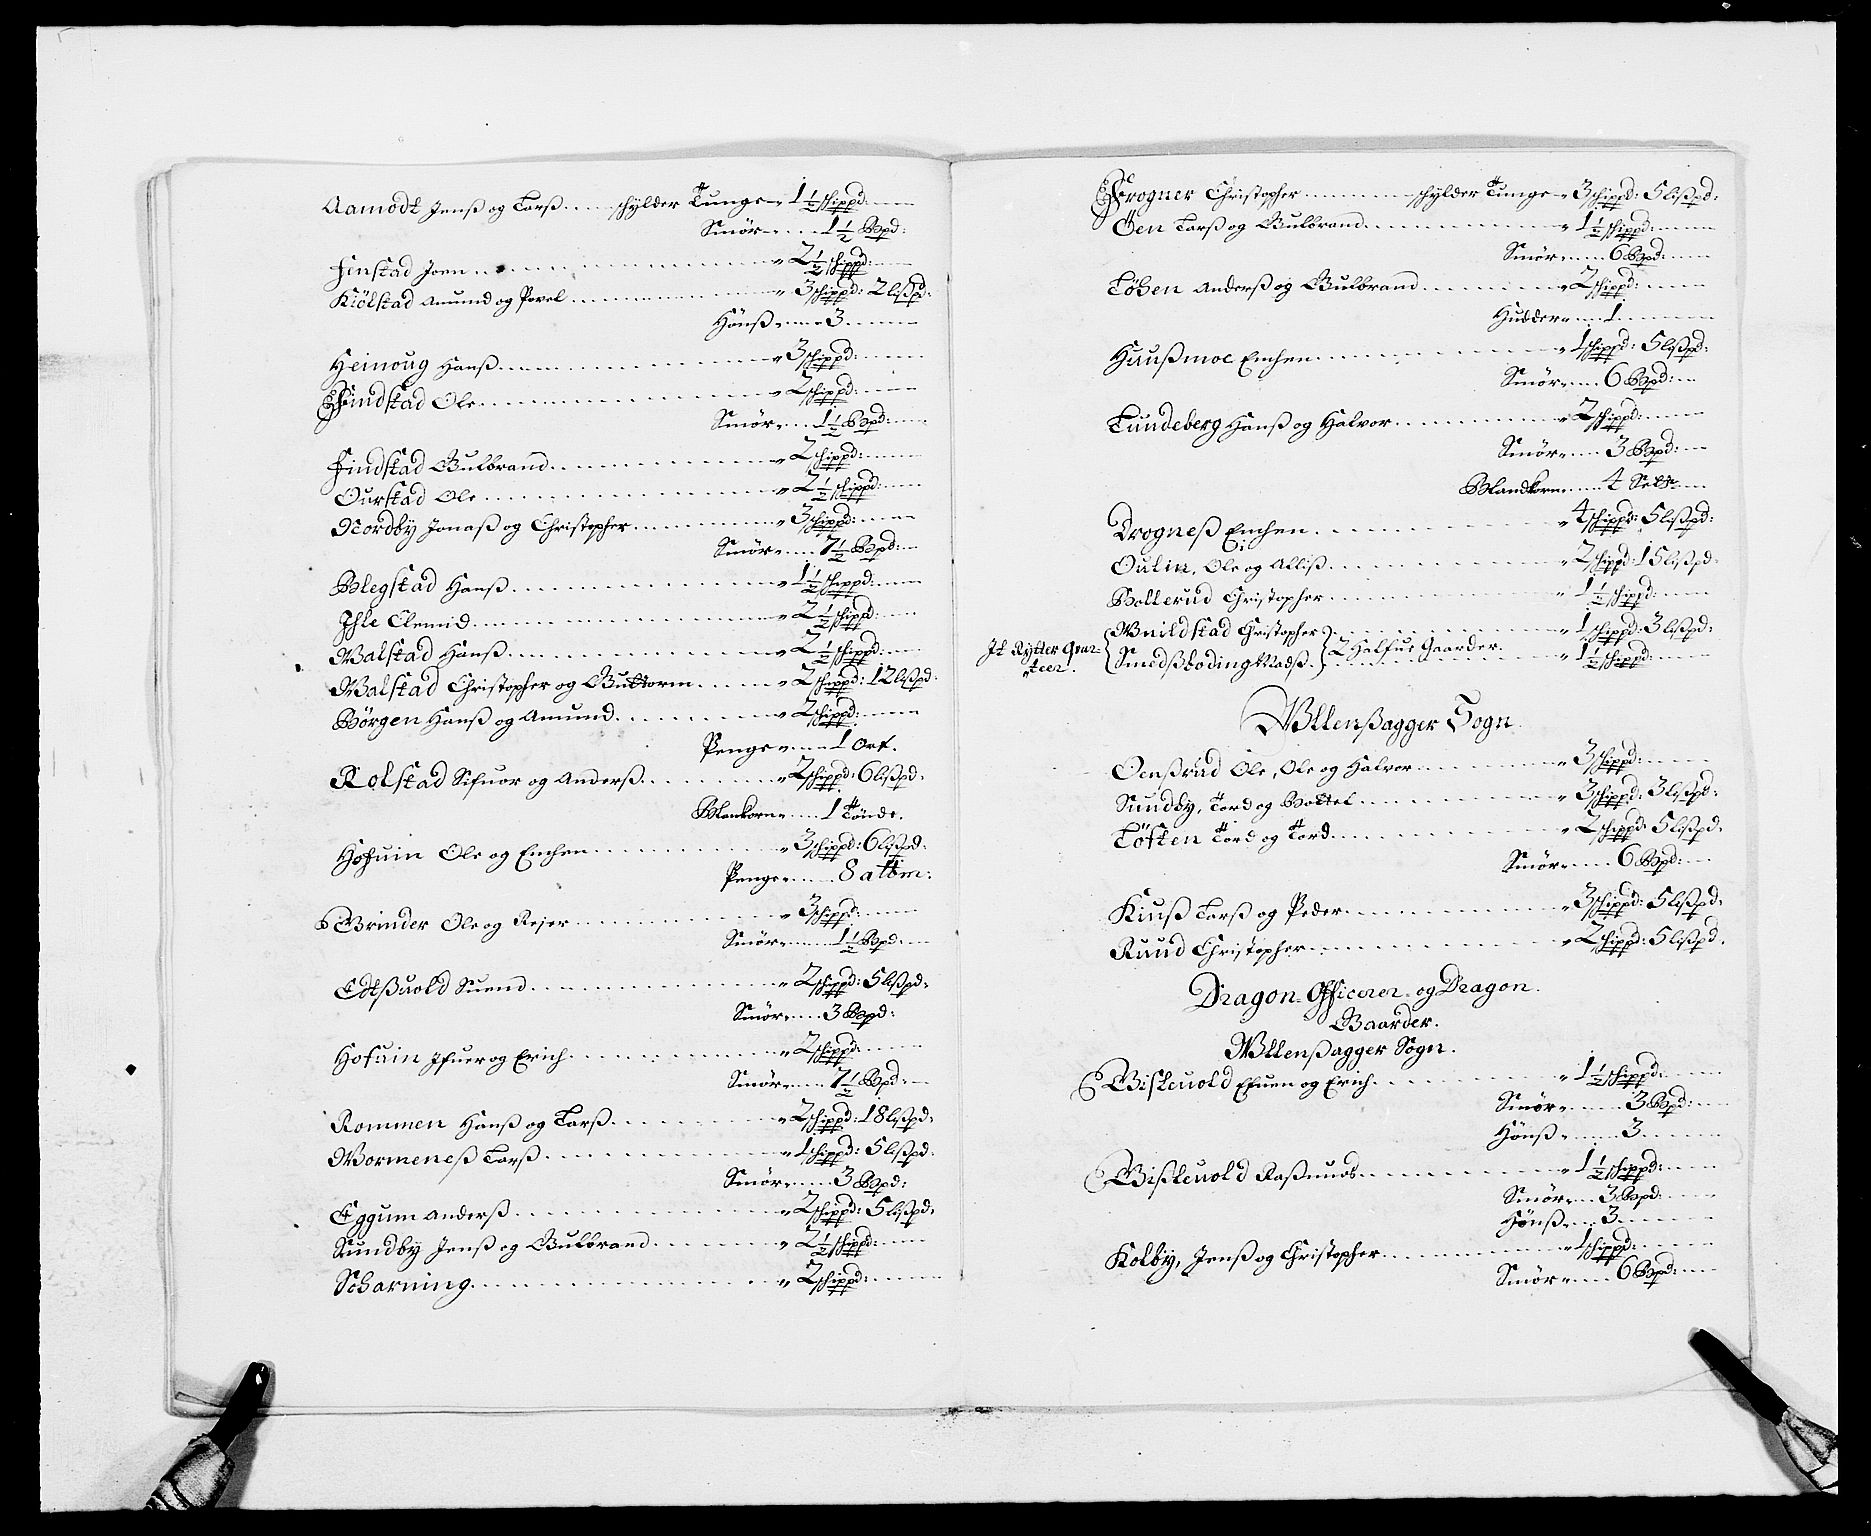 Aamodt Jenß og Larß..... schylder Tunge 1½ schippd:
Smör 1½ Bpd:
Finstad Joen 2½ schippd:
Kiölstad Amund og Povel 3 schippd: 2 lißpd:
Hönß 3
Heinoug Hanß 3 schippd:
Findstad Ole 2 schippd:
Smör 1½ Bpd:
Findstad Gulbrand 2 schippd:
Ourstad Ole 2½ schippd:
Nordby Jonaß og Christopher 3 schippd:
Smör 7½ Bpd:
Blegstad Hanß 1½ schippd:
Ihle Clemid 2½ schippd:
Walstad Hanß 2½ schippd:
Walstad Christopher og Guttorm 2 schippd: 12 lißpd:
Börgen Hanß og Amund 2 schippd:
Penge 1 Ort.
Rolstad Sifuor og Anderß 2 schippd: 6 lißpd:
Blankorn 1 Tönde.
Hofuin Ole og Emchen 3 schippd: 6 lißpd:
Penge 8
Grinder Ole og Rejer 3 schippd:
Smör 1½ Bpd:
Edßuold Suend 2 schippd: 5 lißpd:
Smör 3 Bpd:
Hofuin Ifuer og Erich 2 schippd:
Smör 7½ Bpd:
Rommen Hanß og Larß 2 schippd: 18 lißpd:
Wormeneß Larß 1 schippd: 5 lißpd:
Smör 3 Bpd:
Eggum Anderß 2 schippd: 5 lißpd:
Sundby Jenß og Gulbrand 2½ schippd:
Scharning 2 schippd:
Frogner Christopher schylder Tunge 3 schippd: 5 lißpd:
Öen Larß og Gulbrand 1½ schippd:
Smör 6 Bpd:
Löhen Anderß og Gulbrand 2 schippd:
Hudder 1
Huußmoe Emchen 1 schippd: 5 lißpd:
Smör 6 Bpd:
Lundeberg Hanß og Halvor 2 schippd:
Smör 3 Bpd:
Blandkorn 4
Drogneß Emchen 4 schippd: 5 lißpd:
Oulin, Ole og Alliß 2 schippd: 15 lißpd:
Bollerud Christopher 1½ schippd:
Gnildstad Christopher 1 schippd: 3 lißpd:
It Rytter Quar-
teer. Smedßkoding Madß. 2 Halfue Gaarder. 1½ schippd:
Ullenßagger Sogn
Oenßrud Ole, Ole og Halvor 3 schippd:
Sundby, Tord og Bottel 3 schippd: 3 lißpd:
Löften Tord og Tord 2 schippd: 5 lißpd:
Smör 6 Bpd:
Kiuß Larß og Peder 3 schippd: 5 lißpd:
Ruud Christopher 2 schippd: 5 lißpd:
Dragon-Officerer og Dragon
Gaarder.
Ullenßagger Sogn.
Gisleuold Efuen og Erich 1½ schippd:
Smör 3 Bpd:
Hönß 3
Gißleuold Raßmuds 1½ schippd:
Smör 3 Bpd:
Hönß 3
Kolby, Jenß og Christopher 1 schippd:
Smör 6 Bpd: